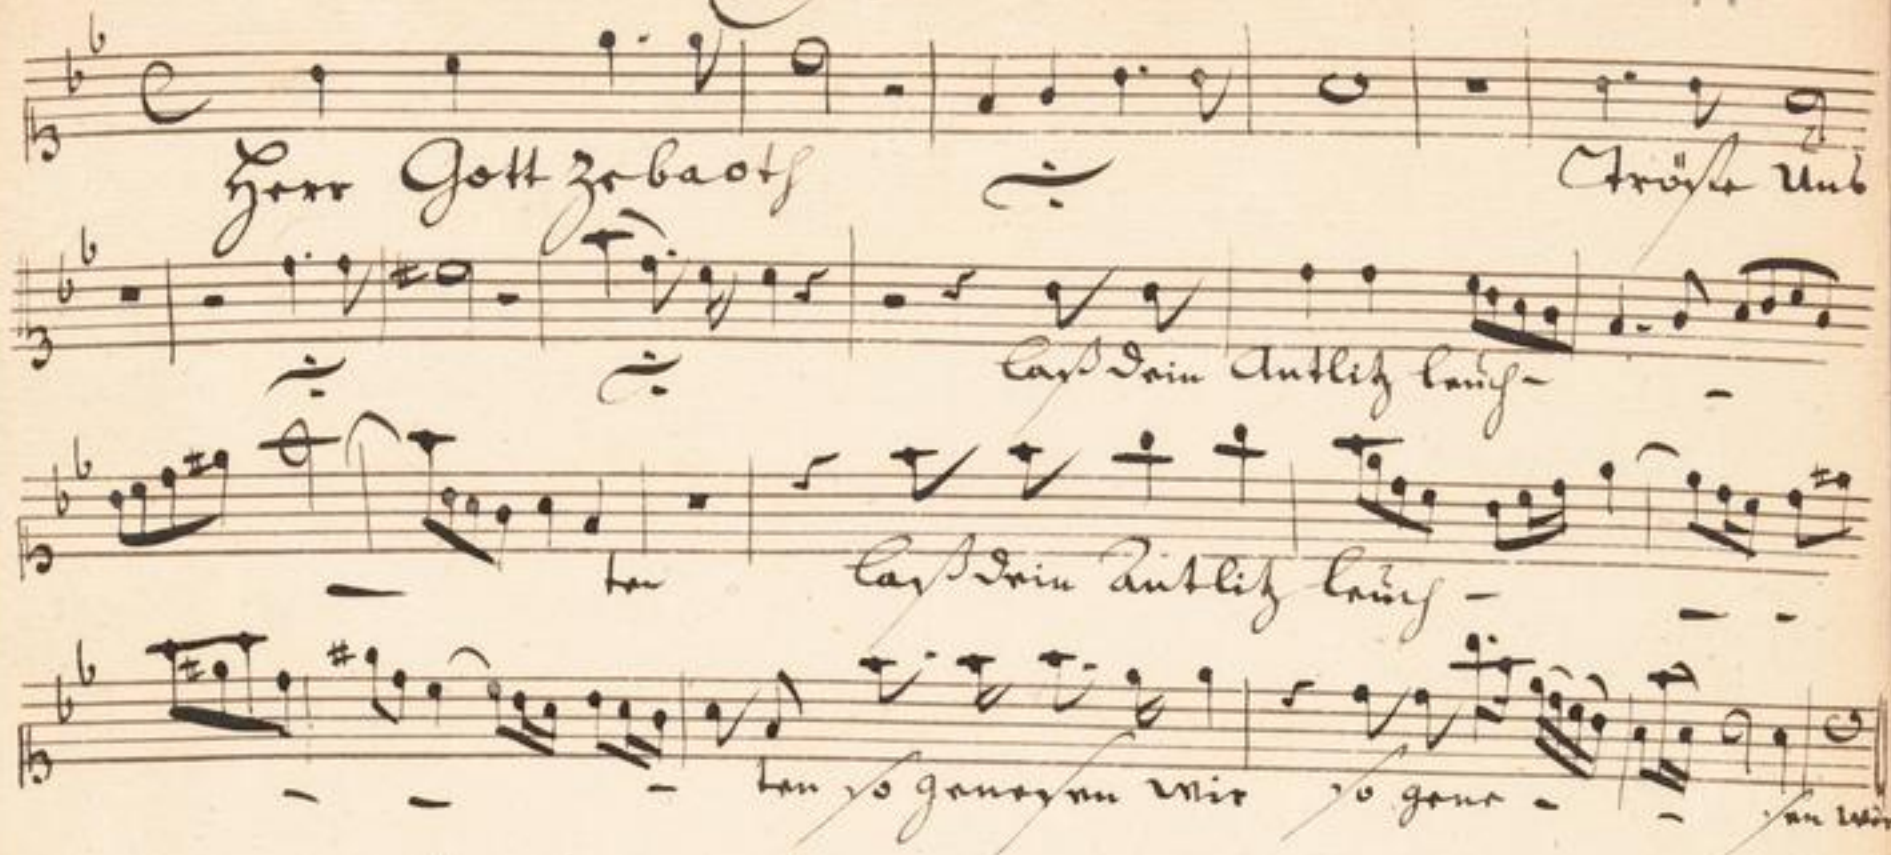 Herr Gott Zebaoth Tröste Uns
laß dein Antlitz leuch-
ten laß dein Antlitz leuch-
ten so genesen wir so gene - sen wir